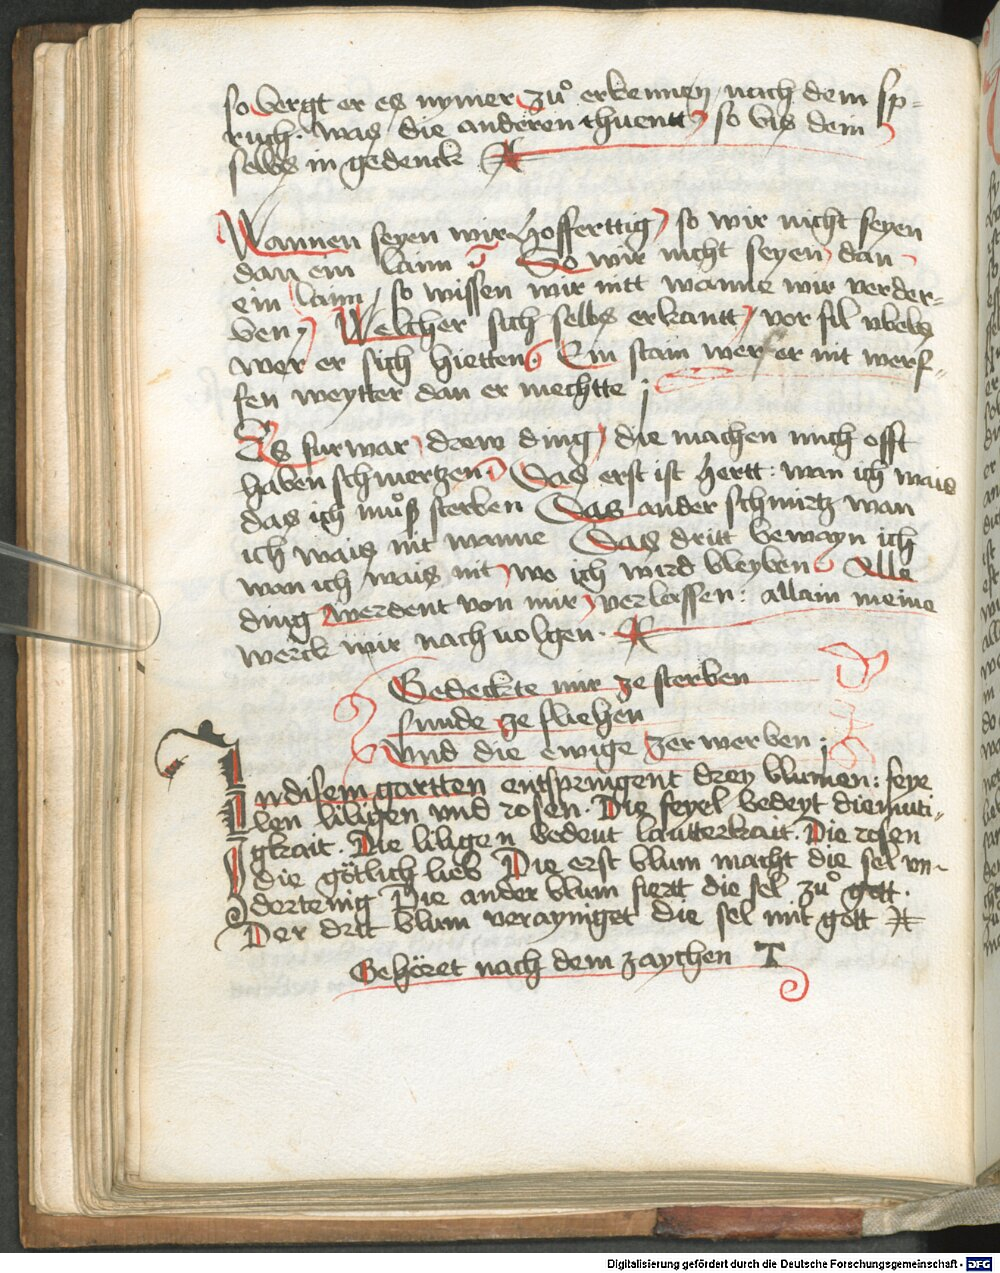 so vergt er es nymer zuͦ erkennen nach dem sp=
ruch. was die anderen thuentt so bis dem
selbs in gedenck
Wannen seyen wir hofferttig so wir nicht seyen
dan ein laim So wir nicht seyen dan
ein laim / so wissen wir nitt wanne wir verder=
ben Welcher sich selbs erkantt vor fil vbels
wer er sich hietten. Ein stain werf er nit werf=
fen weytter dan er mechtte
Es furwar drew ding die machen mich offt
haben schmertzen Das erst ist hertt: wan ich wais
das ich muͦß sterben Das ander schmirtz wan
ich wais nit wanne Das dritt bewayn ich
wan ich wais nit wo ich wird bleyben Alle
ding werdent von mir verlassen: allain meine
werck mir nachuolgen.
Gedeckte mir ze sterben
sunde ze fliehen
vnd die ewige zerwerben
In disem gartten entspringent drey blumen: feye
len liligen vnd rosen. Die feyel bedeyt diemuti=
gkait. Die liligen bedeut lautterkait. Die rosen
die götlich lieb Die erst blum macht die sel vn=
dertenig Die ander blum fiertt die sel zuͦ gott.
Der dritt blum verayniget die sel mit gott
Gehöret nach dem zaychen T
Digitalisierung gefördert durch die Deutsche Forschungsgemeinschaft - DFG